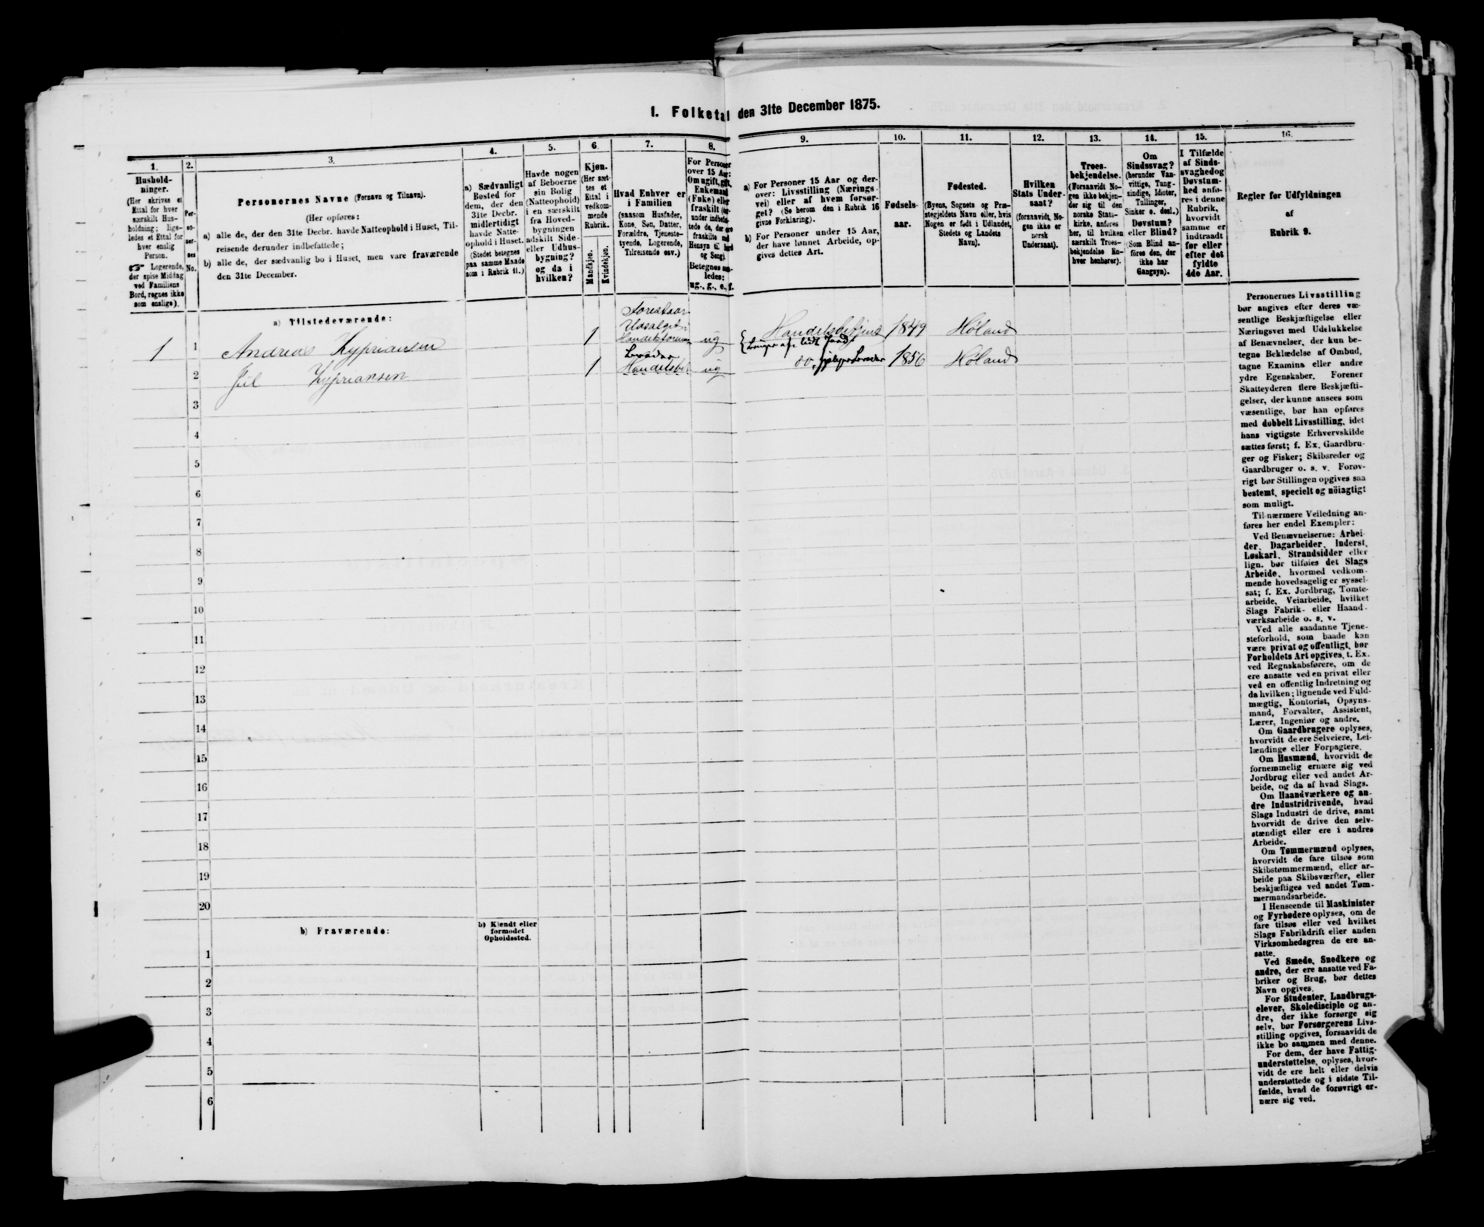 1. Folketal den 31te December 1875.
1.
Hushold-
ninger.
(Her skrives et
Ettal for hver
særskilt Hus-
holdning; lige-
ledes et Ettal for
hver enslig
Person.
☞ Logerende,
der spise Middag
ved Familiens
Bord, regnes ikke
som enslige).
2.
Per-
so-
ner-
nes
No.
3.
Personernes Navne (Fornavn og Tilnavn).
(Her opføres:
a) alle de, der den 31te Decbr. havde Natteophold i Huset, Til-
reisende derunder indbefattede;
b) alle de, der sædvanlig bo i Huset, men vare fraværende
den 31te December.
4.
a) Sædvanligt
Bosted for
dem, der den
31te Decbr.
midlertidigt
havde Natte-
ophold i Huset.
(Stedet betegnes
paa samme Maade
som i Rubrik 11.)
5.
Havde nogen
af Beboerne
sin Bolig
(Natteophold)
i en særskilt
fra Hoved-
bygningen
adskilt Side-
eller Udhus-
bygning?
og da i
hvilken?
6.
Kjøn.
(Her sæt-
tes et
Ettal i
vedkom-
mende
Rubrik.
Mandkjøn.
Kvindekjøn.
7.
Hvad Enhver er
i Familien
(saasom Husfader,
Kone, Søn, Datter,
Forældre, Tjeneste-
tyende, Logerende,
Tilreisende osv.)
8.
For Personer
over 15 Aar:
Om ugift, gift,
Enkemand
(Enke) eller
fraskilt
9.
a) For Personer 15 Aar og der-
over: Livsstilling (Nærings-
vei) eller af hvem forsør-
get? (Se herom den i Rubrik 16
givne Forklaring).
b) For Personer under 15 Aar,
der have lønnet Arbeide, op-
gives dettes Art.
10.
Fødsels-
aar.
11.
Fødested.
(Byens, Sognets og Præ-
stegjeldets Navn eller, hvis
Nogen er født i Udlandet,
Stedets og Landets
Navn).
12.
Hvilken
Stats Under-
saat?
(forsaavidt, No-
gen ikke er
norsk
Undersaat).
13.
Troes-
bekjendelse.
(Forsaavidt No-
gen ikke bekjen-
der sig til den
norske Stats-
kirke, anføres
her, til hvilken
særskilt Troes-
bekjendelse En-
hver henhører).
14.
Om
Sindssvag?
(herunder Van-
vittige, Tung-
sindige, Idioter,
Tullinger,
Sinker o. desl.)
Døvstum?
eller Blind?
(Som Blind an-
føres den, der
ikke har
Gangsyn).
15.
I Tilfælde
af Sinds-
svaghed og
Døvstum-
hed anfø-
res i denne
Rubrik,
hvorvidt
samme er
indtraadt
før eller
efter det
fyldte
4de Aar.
16.
Regler for Udfyldningen
af
Rubrik 9.
a) Tilstedeværende:
1 1 Andreas Kypriansen 1 ug Handelsbetjent 1849 Høland
2 Kypriansen 1 Handelsb ug do. 1856 Høland
3
4
5
6
7
8
9
10
11
12
13
14
15
16
17
18
19
20
b) Fraværende:
b) Kjendt eller
formodet
Opholdssted.
1
2
3
4
5
6
Personernes Livsstilling
bør angives efter deres væ-
sentlige Beskjæftigelse eller
Næringsvei med Udelukkelse
af Benævnelser, der kun be-
tegne Beklædelse af Ombud,
tagne Examina eller andre
ydre Egenskaber. Forener
Skatteyderen flere Beskjæfti-
gelser, der kunne ansees som
væsentlige, bør han opføres
med dobbelt Livsstilling, idet
hans vigtigste Erhvervskilde
sættes først; f. Ex. Gaardbru-
ger og Fisker; Skibsreder og
Gaardbruger o. s. v. Forøv-
rigt bør Stillingen opgives saa
bestemt, specielt og nöiagtigt
som muligt.
Til nærmere Veiledning an-
føres her endel Exempler:
Ved Benævnelserne: Arbei-
der, Dagarbeider, Inderst,
Løskarl, Strandsidder eller
lign. bør tilføies det Slags
Arbeide, hvormed vedkom-
mende hovedsagelig er syssel-
sat; f. Ex. Jordbrug, Tomte-
arbeide, Veiarbeide, hvilket
Slags Fabrik- eller Haand-
værksarbeide o. s. v.
Ved alle saadanne Tjene-
steforhold, som baade kan
være privat og offentligt, bør
Forholdets Art opgives, t. Ex.
ved Regnskabsførere, om de
ere ansatte ved en privat eller
ved en offentlig Indretning og
da hvilken; lignende ved Fuld-
mægtig, Kontorist, Opsyns-
mand, Forvalter, Assistent,
Lærer, Ingeniør og andre.
Om Gaardbrugere oplyses,
hvorvidt de ere Selveiere, Lei-
lændinge eller Forpagtere.
Om Husmænd, hvorvidt de
fornemmelig ernære sig ved
Jordbrug eller ved andet Ar-
beide, og da af hvad Slags.
Om Haandværkere og an-
dre Industridrivende, hvad
Slags Industri de drive, samt
hvorvidt de drive den selv-
stændigt eller ere i andres
Arbeide.
Om Tømmermænd oplyses,
hvorvidt de fare tilsøs som
Skibstømmermænd, eller ar-
beide paa Skibsværfter, eller
beskjæftiges ved andet Tøm-
mermandsarbeide.
I Henseende til Maskinister
og Fyrbødere oplyses, om de
fare tilsøs eller ved hvilket
Slags Fabrikdrift eller anden
Virksomhedsgren de ere an-
satte.
Ved Smede, Snedkere og
andre, der ere ansatte ved Fa-
briker og Brug, bør dettes
Navn opgives.
For Studenter, Landbrugs-
elever, Skoledisciple og an-
dre, der ikke forsørge sig
selv, bør Forsørgerens Livs-
stilling opgives, forsaavidt de
ikke bo sammen med denne.
For dem, der have Fattig-
understøttelse, oplyses, hvor-
vidt de ere helt eller delvis
understøttede og i sidste Til-
fælde, hvad de forøvrigt er-
nære sig ved.